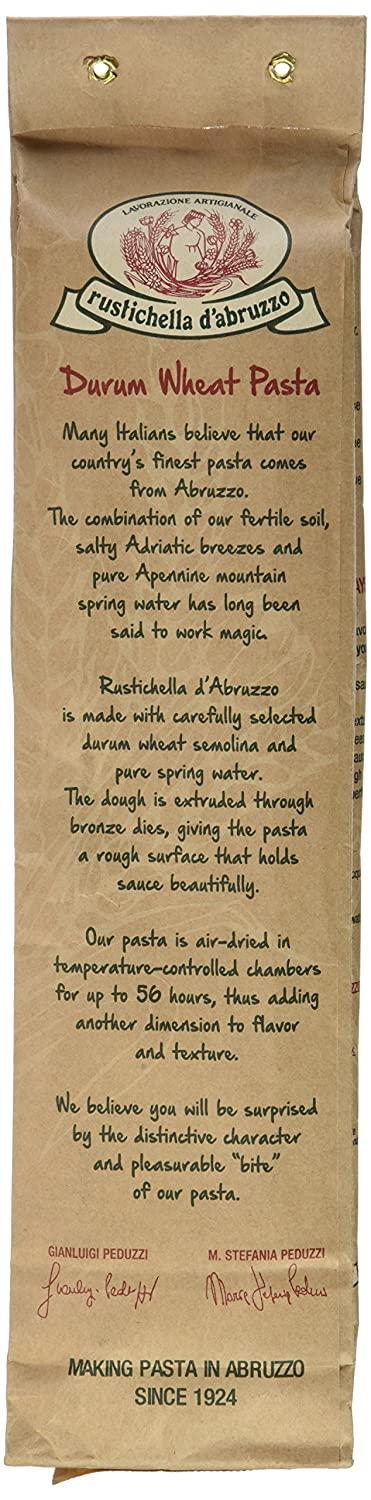 LAVORAZIONE ARTIGIANALE
rustichella d'abruzzo
Durum Wheat Pasta
Many Italians believe that our
country's finest pasta comes
from Abruzzo.
The combination of our fertile soil,
salty Adriatic breezes and
pure Apennine mountain
spring water has long been
said to work magic.
Rustichella d'Abruzzo
is made with carefully selected
durum wheat semolina and
pure spring water.
The dough is extruded through
bronze dies, giving the pasta
a rough surface that holds
sauce beautifully.
Our pasta is air-dried in
temperature-controlled chambers
for up to 56 hours, thus adding
another dimension to flavor
and texture.
We believe you will be surprised
by the distinctive character
and pleasurable "bite"
of our pasta.
GIANLUIGI PEDUZZI M. STEFANIA PEDUZZI
MAKING PASTA IN ABRUZZO
SINCE 1924